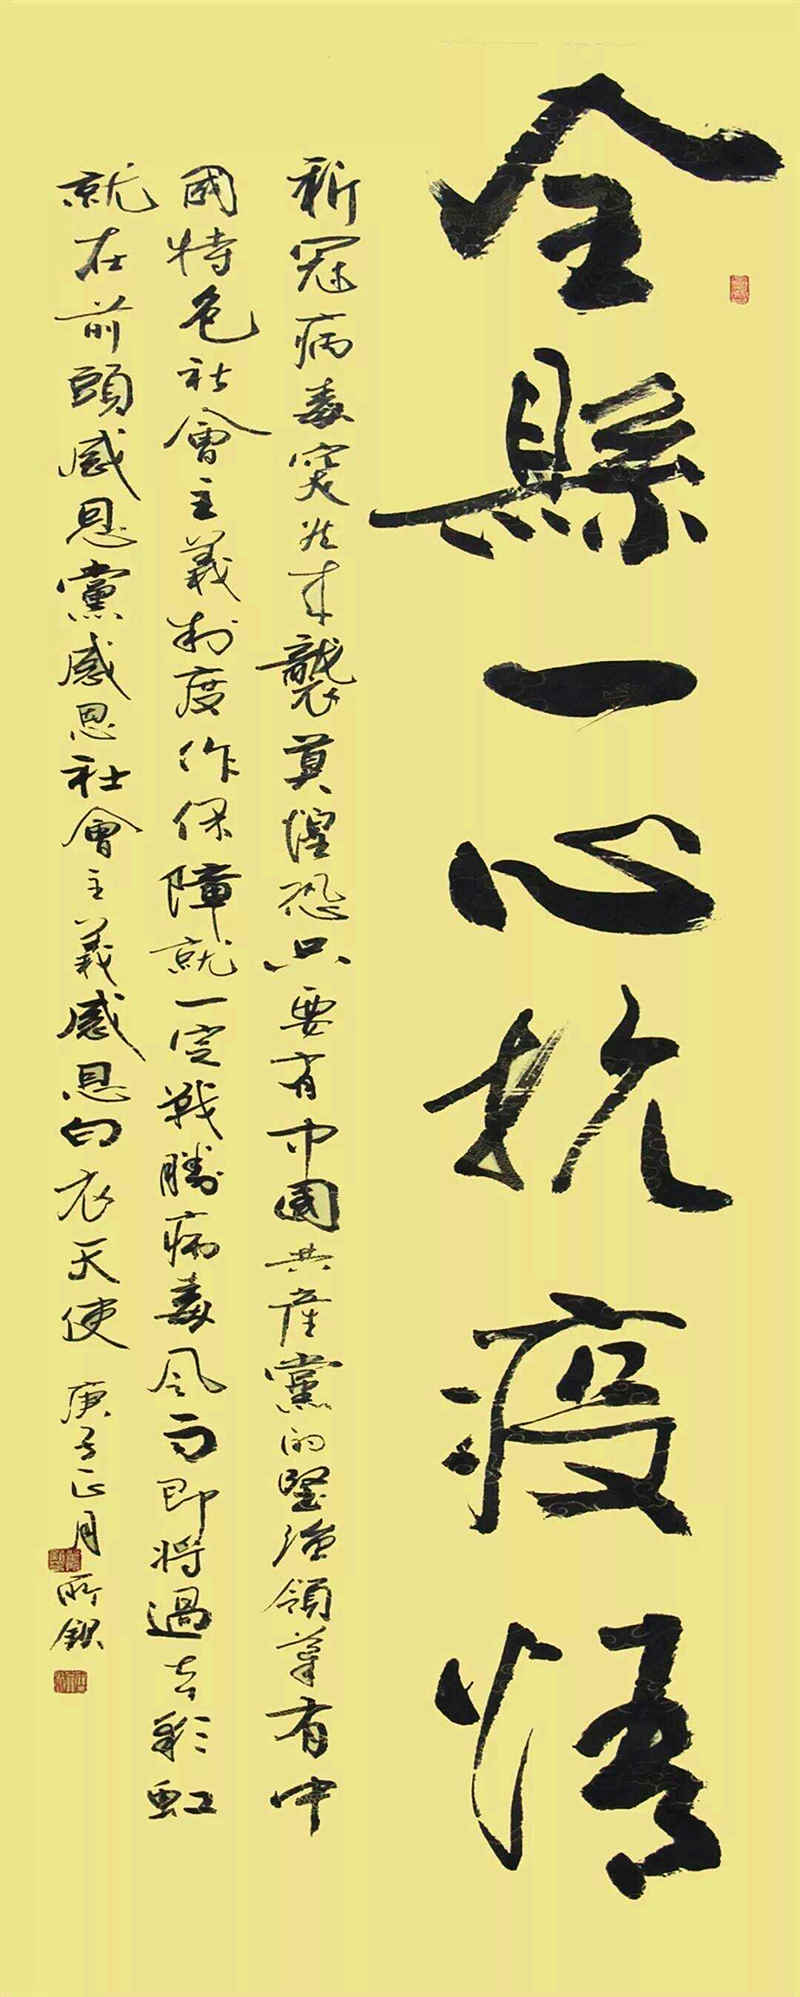 全縣一心抗疫悟
新冠病毒突然來襲莫惶恐只要有中國共產黨的堅強領導有中
國特色社會主義制度作保障就一定戰勝病毒風雨即將過去彩虹
就在前頭感恩黨感恩社會主義感恩白衣天使 庚子正月 所